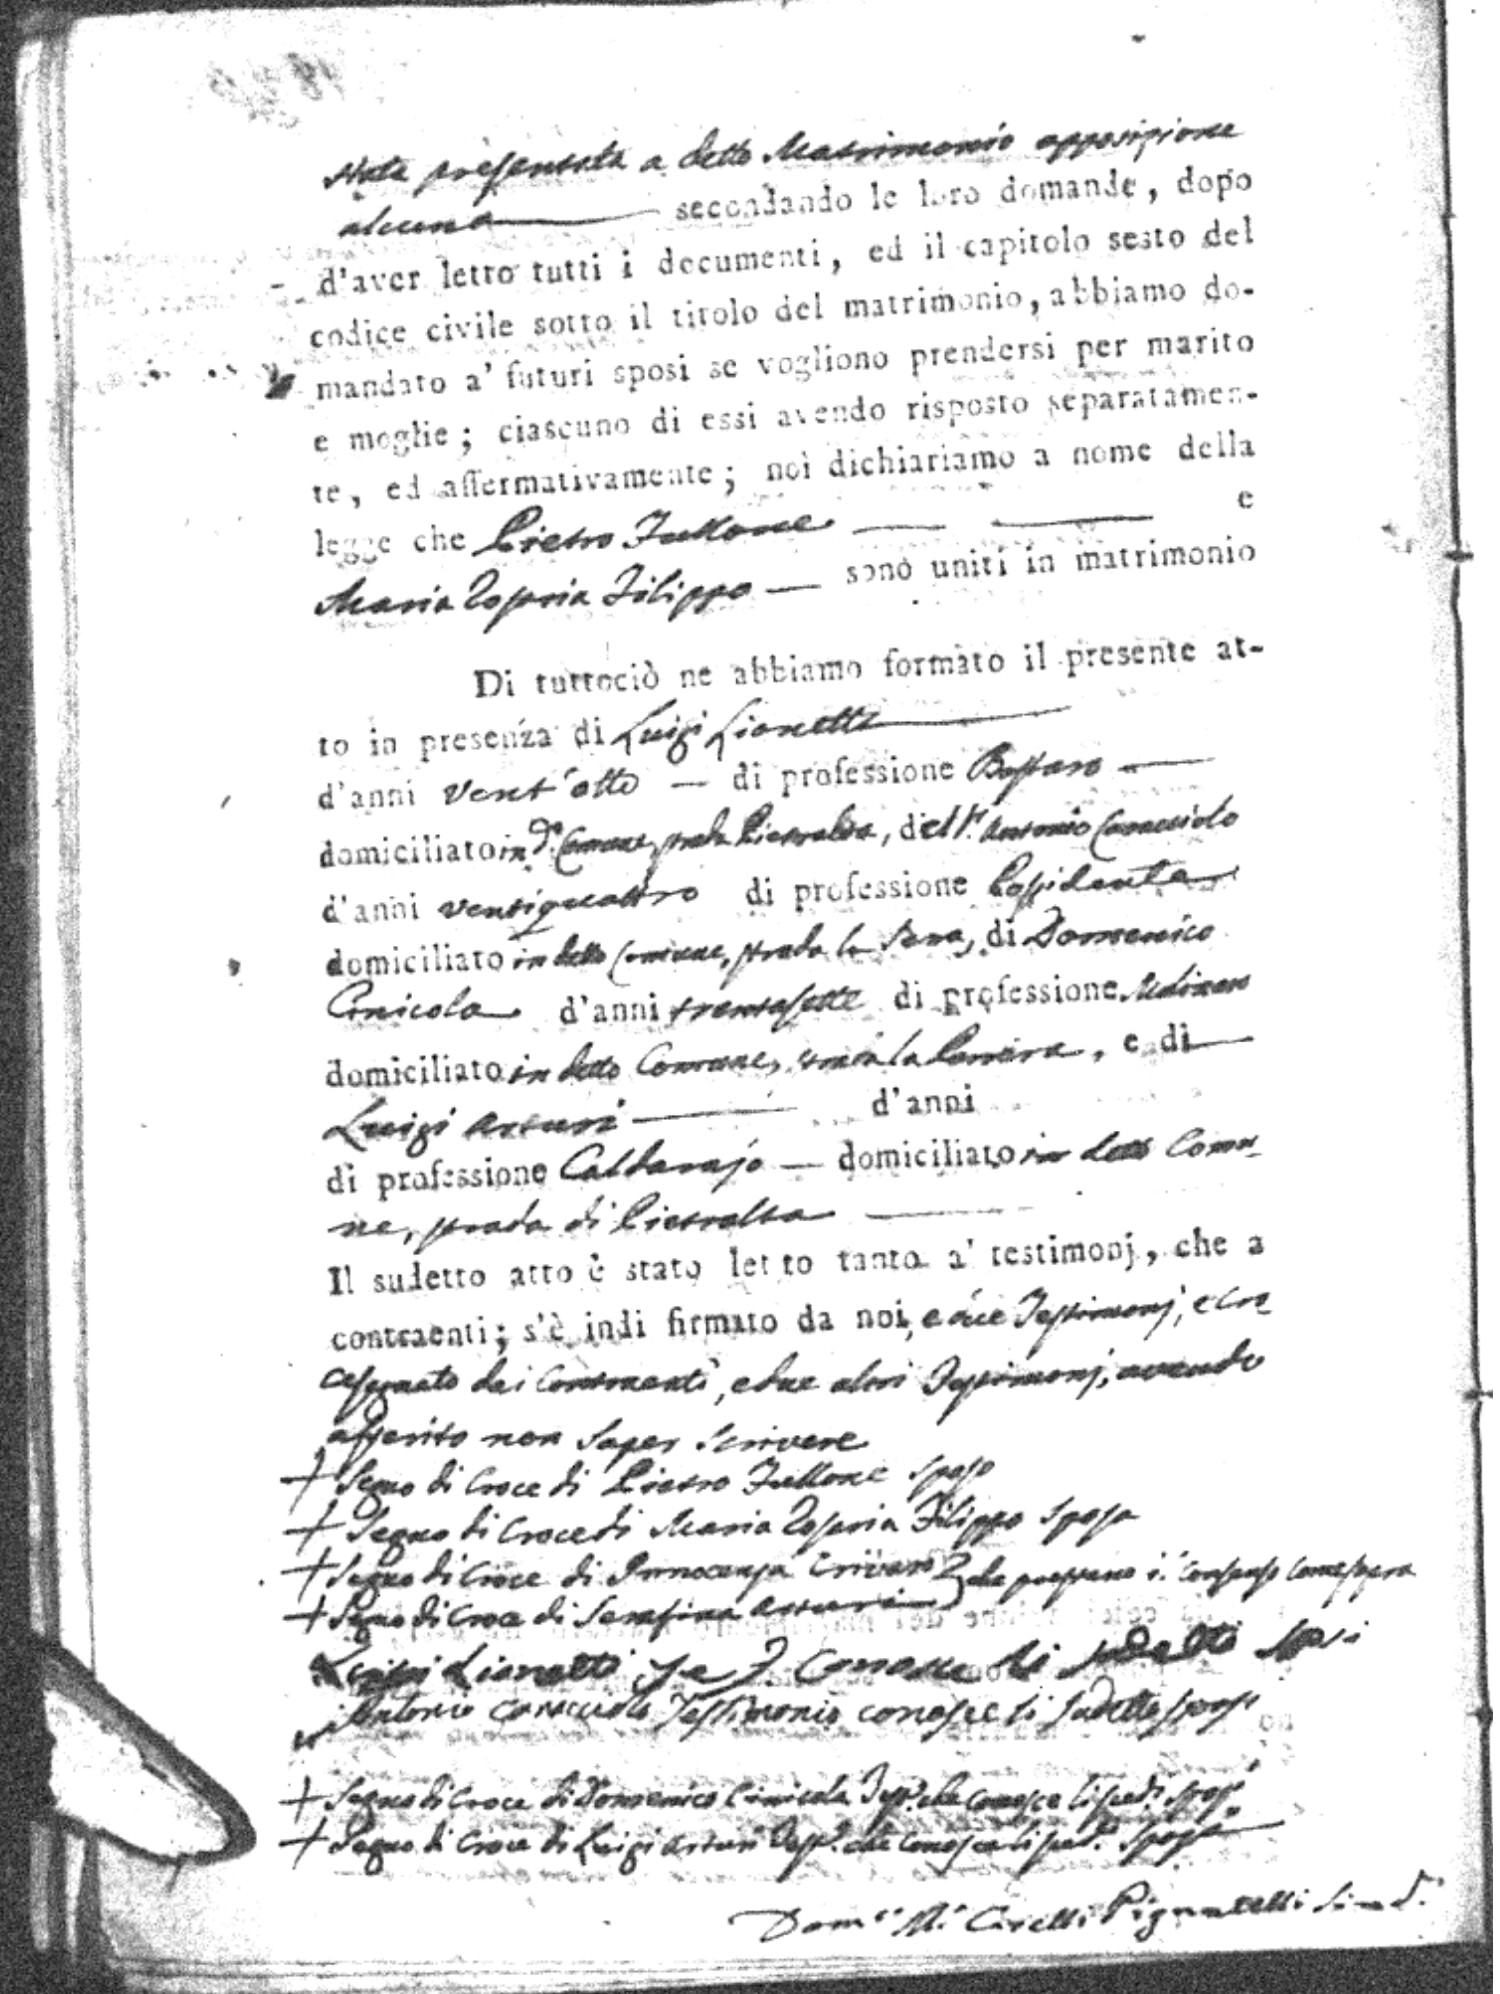 stata presentata a detto Matrimonio opposizione
alcuna secondando le loro domande, dopo
d'aver letto tutti i documenti, ed il capitolo sesto del
codice civile sotto il titolo del matrimonio, abbiamo do-
mandato a' futuri sposi se vogliono prendersi per marito
e moglie; ciascuno di essi avendo risposto separatamen-
te, ed affermativamente; noi dichiariamo a nome della
legge che Pietro Fullone e
Maria Rosaria Filippo sono uniti in matrimonio
Di tuttociò ne abbiamo formato il presente at-
to in presenza di Luigi Lionetti
d'anni vent'otto di professione
domiciliato in d.o Comune, strada Pietralta, di Antonio Caracciolo
d'anni ventiquattro di professione Possidente
domiciliato in detto Comune, strada la, di Domenico
Cinicola d'anni trentasette di professione
domiciliato in detto Comune, strada la, e di
Luigi Arturi d'anni
di professione Caldarajo domiciliato in detto Comu-
ne, strada di Pietralta
Il sudetto atto è stato letto tanto a' testimonj, che a
contraenti; s'è indi firmato da noi, e due Testimonj, e cro-
cesegnato dai Contraenti, e due altri Testimonj, avendo
asserito non saper scrivere
+ Segno di Croce di Pietro Fullone Sposo
+ Segno di Croce di Maria Rosaria Filippo Sposa
+ Segno di Croce di Innocenza
+ Segno di Croce di Serafina Arturi che prestano il Consenso come sopra
Luigi Lionetti conosce li sudetti Sposi
Antonio Caracciolo Testimonio conosce li sudetti sposi
+ Segno di Croce di Domenico Cinicola Test.o che conosce li sud.i sposi
+ Segno di Croce di Luigi Arturi Test.o che conosce li sud.i Sposi
Dom.co M.a Cirelli Pignatelli Sind.